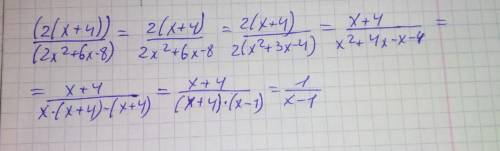 (2(x+4))/(2x²+6x-8) = 2(x+4)/2x²+6x-8 = 2(x+4)/2(x²+3x-4) = x+4/x²+4x-x-4 =
= x+4/x·(x+4)-(x+4) = x+4/(x+4)·(x-1) = 1/x-1